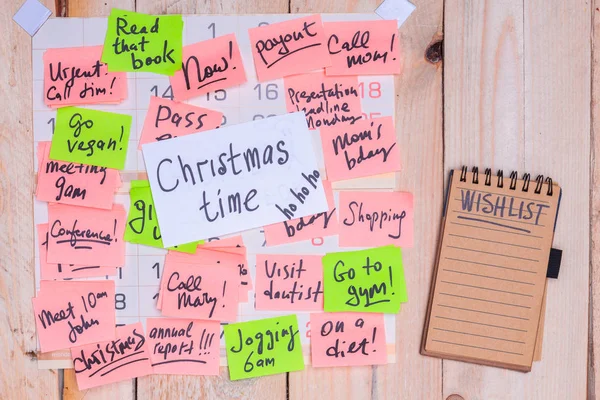 Read
that
book
Urgent!
Call Jim!
Now!
payout
Call
mom!
Go
vegan!
Pass
Presentation
deadline
Monday
18
14
16
Mom's
bday
meeting
9am
Christmas
time
ho ho ho
Conference!
Shopping
Call
Mary!
Visit
dentist
Go to
gym!
Meet 10am
John
Christmas
annual
report!!!
Jogging
6am
On a
diet!
WISHLIST